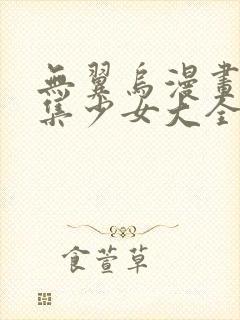 無翼烏漫畫
集少女大全
食萱草